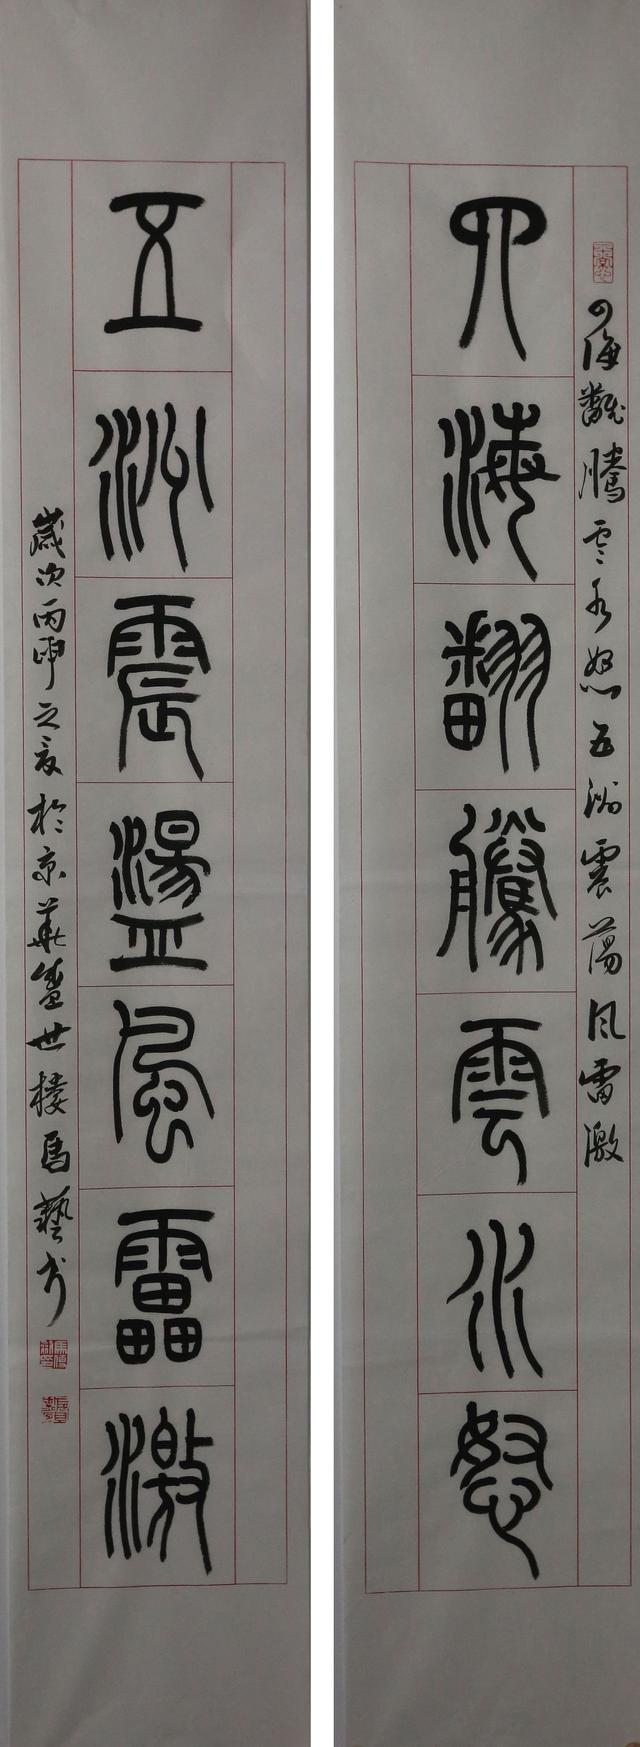 四海飜騰雲水怒五洲震蕩風雷激
四海翻騰雲水怒
五洲震盪風雷激
歲次丙申之夏於京華盛世樓馬藝書